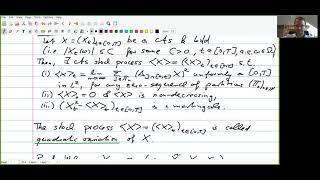 Let X = (X_t)_{t∈[0,T]} be a cts & bdd
(i.e. |X_t(ω)| ≤ C for some C>0, t∈[0,T], a.e. ω∈Ω)
Then, ∃ cts stoch process <X> = (<X>_t)_{t∈[0,T]} s.t.
(i) <X>_t = lim_{n→∞} Σ X)² uniformly on [0,T]
in L², for any zero-sequence of partitions (Π_n)_{n∈ℕ}
(ii) <X>_0 = 0 & <X> is nondecreasing,
(iii) (X_t² - <X>_t)_{t∈[0,T]} is a martingale.
The stoch process <X> = (<X>_t)_{t∈[0,T]} is called
quadratic variation of X.